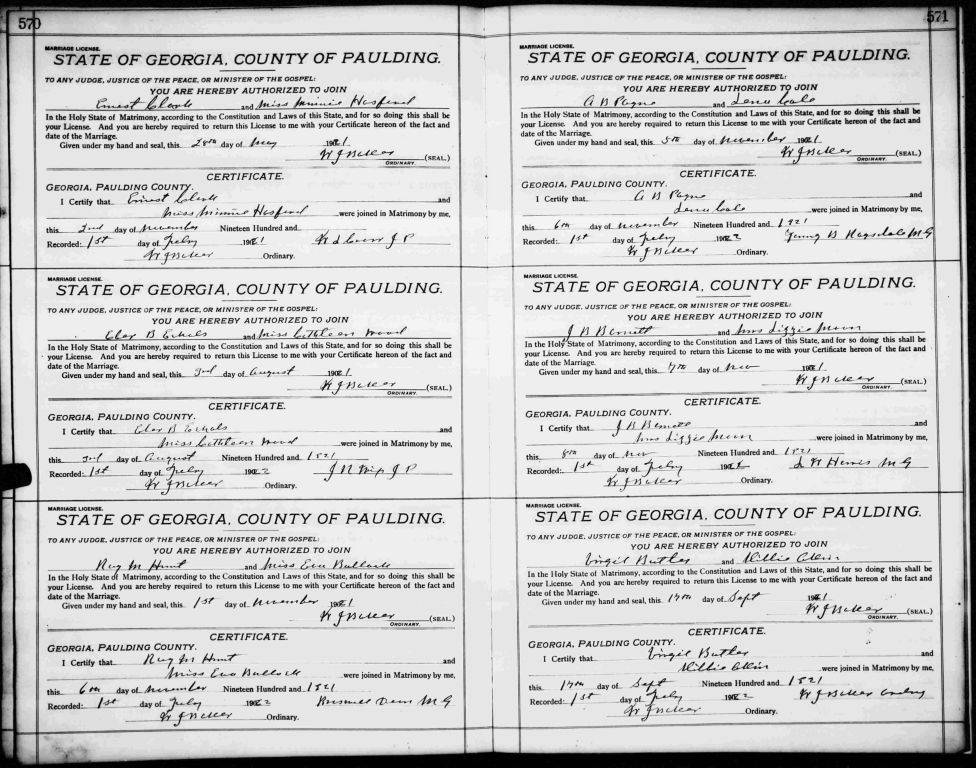 570
MARRIAGE LICENSE.
STATE OF GEORGIA, COUNTY OF PAULDING.
TO ANY JUDGE, JUSTICE OF THE PEACE, OR MINISTER OF THE GOSPEL:
YOU ARE HEREBY AUTHORIZED TO JOIN
Ernest and Miss Minnie
In the Holy State of Matrimony, according to the Constitution and Laws of this State, and for so doing this shall be
your License. And you are hereby required to return this License to me with your Certificate hereon of the fact and
date of the Marriage.
Given under my hand and seal, this 28th day of May 1921
(SEAL.)
ORDINARY.
CERTIFICATE.
GEORGIA, PAULDING COUNTY.
I Certify that Ernest and
Miss Minnie were joined in Matrimony by me,
this 2nd day of November Nineteen Hundred and
Recorded: 1st day of Feby 192 J P
Ordinary.
MARRIAGE LICENSE.
STATE OF GEORGIA, COUNTY OF PAULDING.
TO ANY JUDGE, JUSTICE OF THE PEACE, OR MINISTER OF THE GOSPEL:
YOU ARE HEREBY AUTHORIZED TO JOIN
B Echols and Miss Wood
In the Holy State of Matrimony, according to the Constitution and Laws of this State, and for so doing this shall be
your License. And you are hereby required to return this License to me with your Certificate hereon of the fact and
date of the Marriage.
Given under my hand and seal, this 3rd day of August 1921
(SEAL.)
ORDINARY.
CERTIFICATE.
GEORGIA, PAULDING COUNTY.
I Certify that B Echols and
Miss Wood were joined in Matrimony by me,
this 3rd day of August Nineteen Hundred and 1921
Recorded: 1st day of Feby 1922 J P
Ordinary.
MARRIAGE LICENSE.
STATE OF GEORGIA, COUNTY OF PAULDING.
TO ANY JUDGE, JUSTICE OF THE PEACE, OR MINISTER OF THE GOSPEL:
YOU ARE HEREBY AUTHORIZED TO JOIN
Roy M Hunt and Miss Eva Bullock
In the Holy State of Matrimony, according to the Constitution and Laws of this State, and for so doing this shall be
your License. And you are hereby required to return this License to me with your Certificate hereon of the fact and
date of the Marriage.
Given under my hand and seal, this 1st day of November 1921
(SEAL.)
ORDINARY.
CERTIFICATE.
GEORGIA, PAULDING COUNTY.
I Certify that Roy M Hunt and
Miss Eva Bullock were joined in Matrimony by me,
this 6th day of November Nineteen Hundred and 1921
Recorded: 1st day of Feby 1922 M G
Ordinary.
571
MARRIAGE LICENSE.
STATE OF GEORGIA, COUNTY OF PAULDING.
TO ANY JUDGE, JUSTICE OF THE PEACE, OR MINISTER OF THE GOSPEL:
YOU ARE HEREBY AUTHORIZED TO JOIN
A B Payne and Lena Cole
In the Holy State of Matrimony, according to the Constitution and Laws of this State, and for so doing this shall be
your License. And you are hereby required to return this License to me with your Certificate hereon of the fact and
date of the Marriage.
Given under my hand and seal, this 5th day of November 1921
(SEAL.)
ORDINARY.
CERTIFICATE.
GEORGIA, PAULDING COUNTY.
I Certify that A B Payne and
Lena Cole were joined in Matrimony by me,
this 6th day of November Nineteen Hundred and 1921
Recorded: 1st day of Feby 1922 B Ragsdale M G
Ordinary.
MARRIAGE LICENSE.
STATE OF GEORGIA, COUNTY OF PAULDING.
TO ANY JUDGE, JUSTICE OF THE PEACE, OR MINISTER OF THE GOSPEL:
YOU ARE HEREBY AUTHORIZED TO JOIN
J B Bennett and Mrs Lizzie
In the Holy State of Matrimony, according to the Constitution and Laws of this State, and for so doing this shall be
your License. And you are hereby required to return this License to me with your Certificate hereon of the fact and
date of the Marriage.
Given under my hand and seal, this 7th day of Nov 1921
(SEAL.)
ORDINARY.
CERTIFICATE.
GEORGIA, PAULDING COUNTY.
I Certify that J B Bennett and
Mrs Lizzie were joined in Matrimony by me,
this 8th day of Nov Nineteen Hundred and 1921
Recorded: 1st day of Feby 192 M G
Ordinary.
MARRIAGE LICENSE.
STATE OF GEORGIA, COUNTY OF PAULDING.
TO ANY JUDGE, JUSTICE OF THE PEACE, OR MINISTER OF THE GOSPEL:
YOU ARE HEREBY AUTHORIZED TO JOIN
Virgil Butler and
In the Holy State of Matrimony, according to the Constitution and Laws of this State, and for so doing this shall be
your License. And you are hereby required to return this License to me with your Certificate hereon of the fact and
date of the Marriage.
Given under my hand and seal, this 17th day of Sept 1921
(SEAL.)
ORDINARY.
CERTIFICATE.
GEORGIA, PAULDING COUNTY.
I Certify that Virgil Butler and
were joined in Matrimony by me,
this 17th day of Sept Nineteen Hundred and 1921
Recorded: 1st day of Feby 1922
Ordinary.